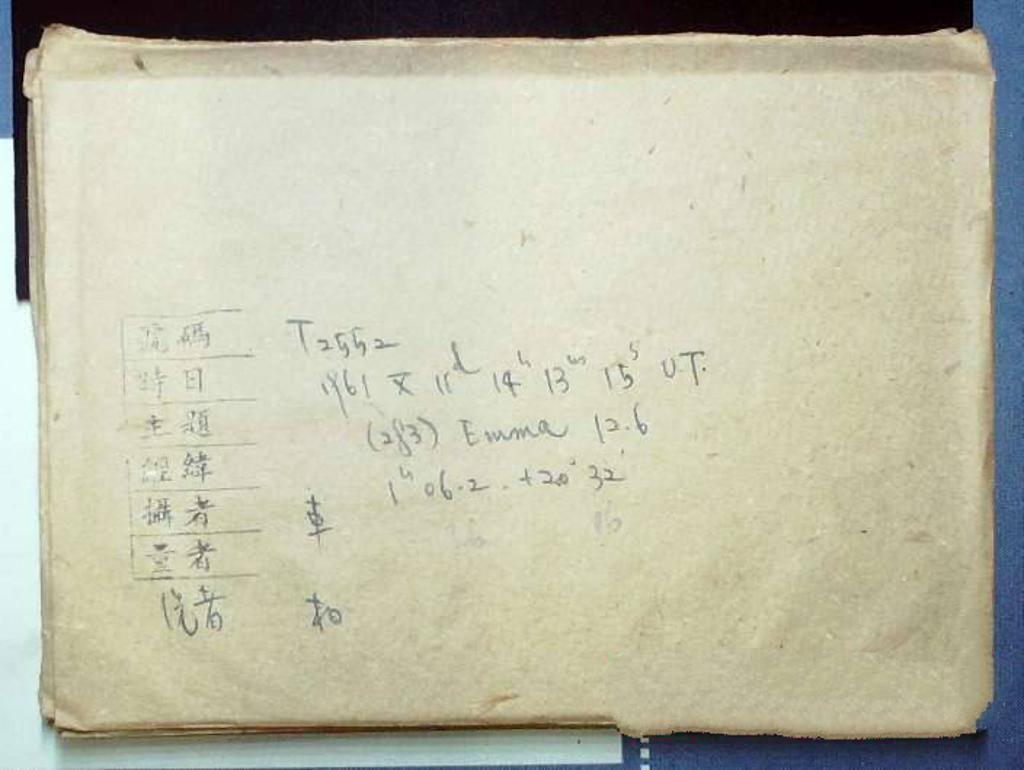 號碼 T2552
時日 1961 X 11ᵈ 14ʰ 13ᵐ 15ˢ UT.
主題 (283) Emma 12.6
經緯 1ʰ 06.2 . +20° 32'
攝者 車
量者
洗者 柏